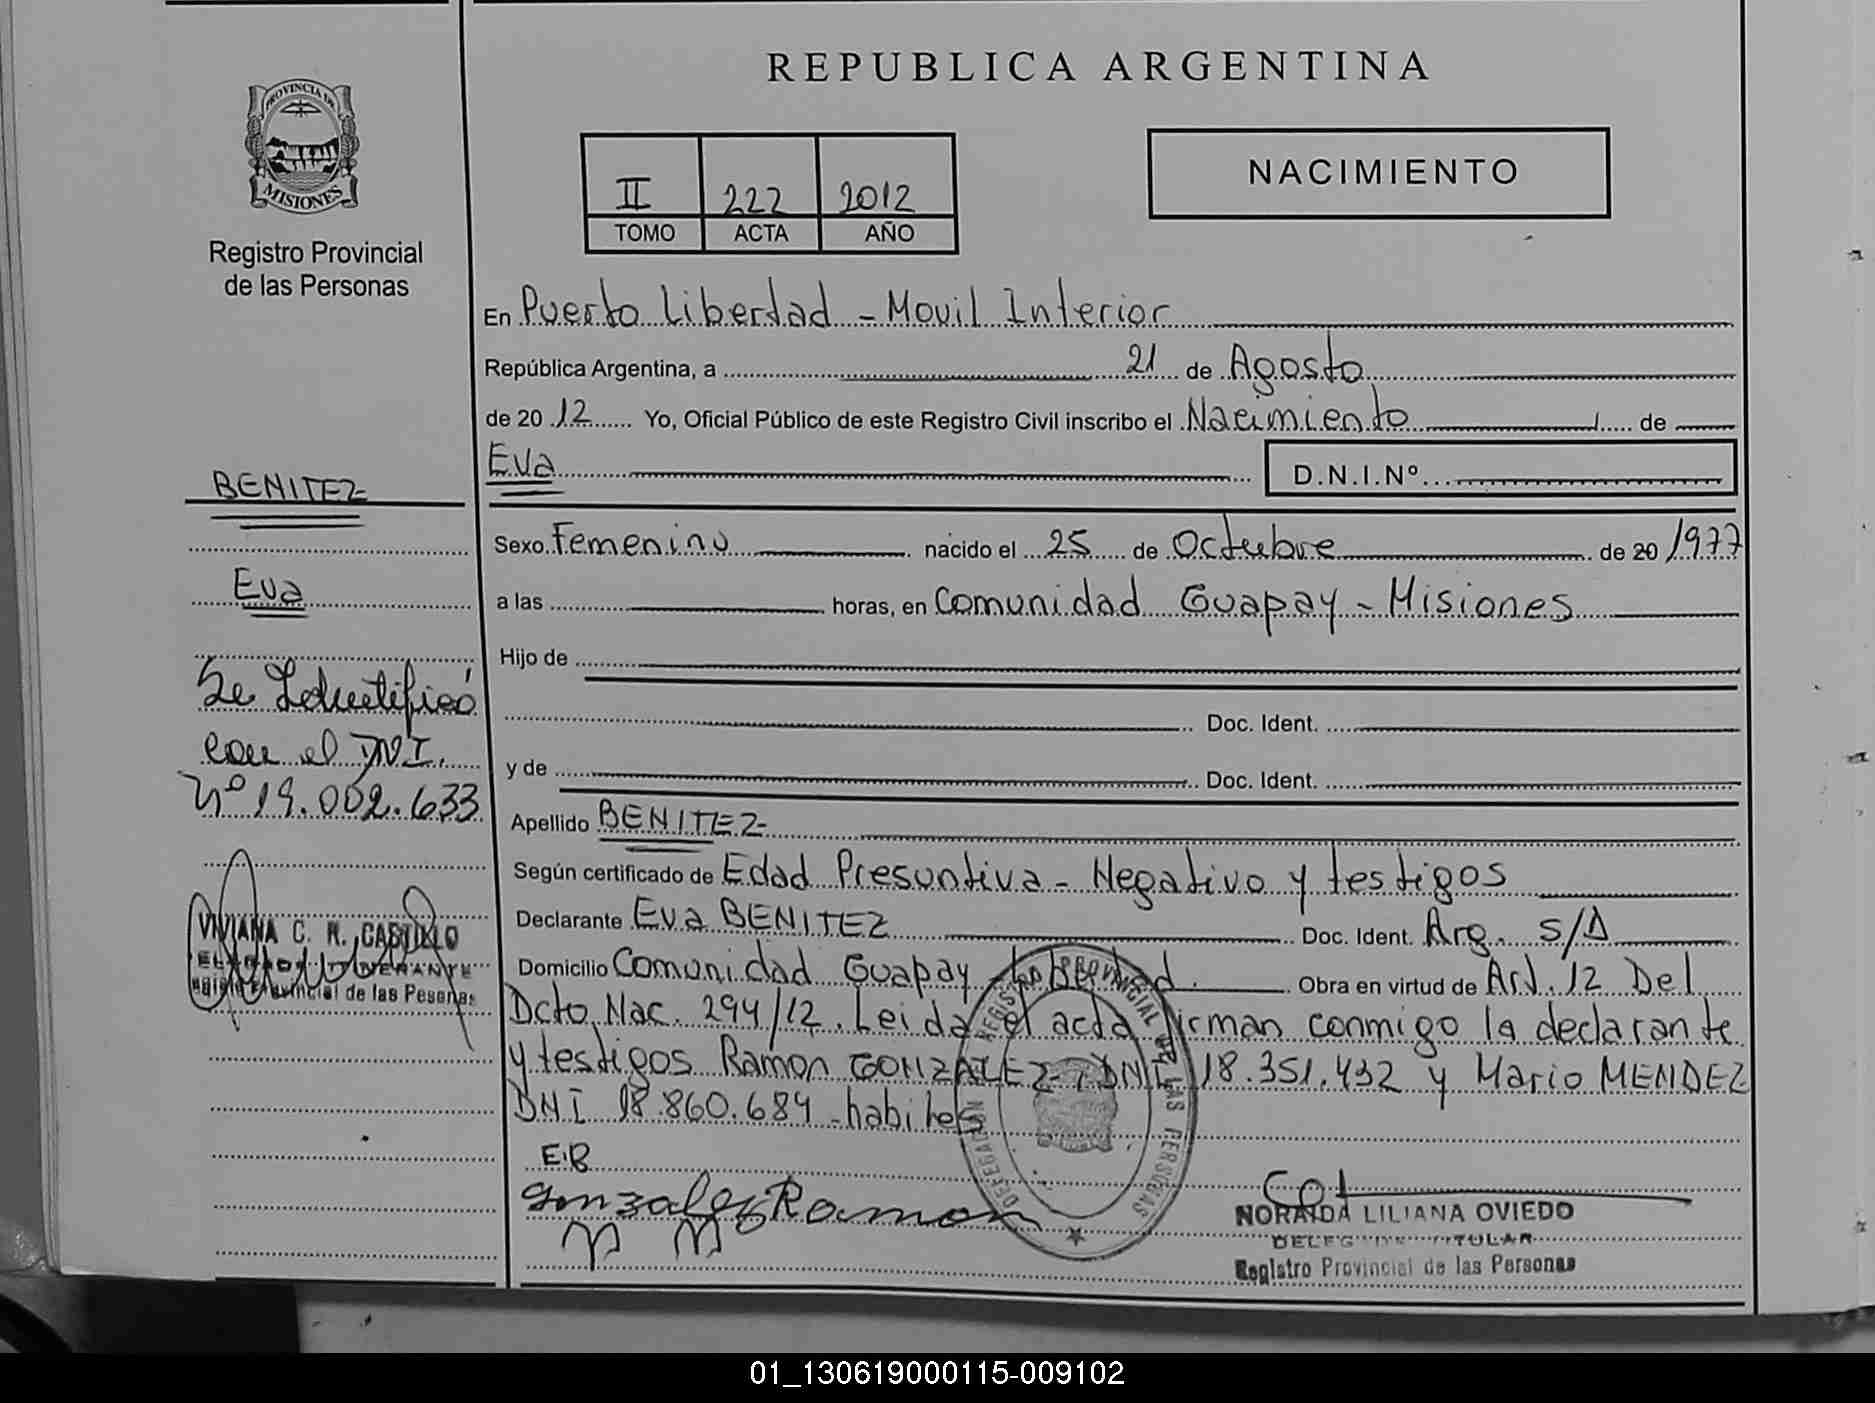 REPUBLICA ARGENTINA
PROVINCIA DE
MISIONES
Registro Provincial
de las Personas
II 222 2012
TOMO ACTA AÑO
NACIMIENTO
En Puerto Libertad - Movil Interior
República Argentina, a 21 de Agosto
de 2012 Yo, Oficial Público de este Registro Civil inscribo el Nacimiento de
Eva
D.N.I.Nº
BENITEZ
Eva
Se Identificó
con el DNI.
Nº 19.002.633
VIVIANA C. R. CASTILLO
de las Pesonas
Sexo Femenino nacido el 25 de Octubre de 20 1977
a las horas, en Comunidad Guapay - Misiones
Hijo de
Doc. Ident.
y de Doc. Ident.
Apellido BENITEZ
Según certificado de Edad Presuntiva - Negativo y testigos
Declarante Eva BENITEZ Doc. Ident. Arg. S/D
Domicilio Comunidad Guapay - Libertad. Obra en virtud de Art. 12 Del
Dcto Nac. 294/12. Leida el acta firman conmigo la declarante
y testigos Ramon GONZALEZ - DNI 18.351.432 y Mario MENDEZ
DNI 18.860.684 - habiles
DELEGACION REGISTRO PROVINCIAL DE LAS PERSONAS
E.B
Gonzalez Ramon
M M
NORAIDA LILIANA OVIEDO
TITULAR
Registro Provincial de las Personas
01_130619000115-009102